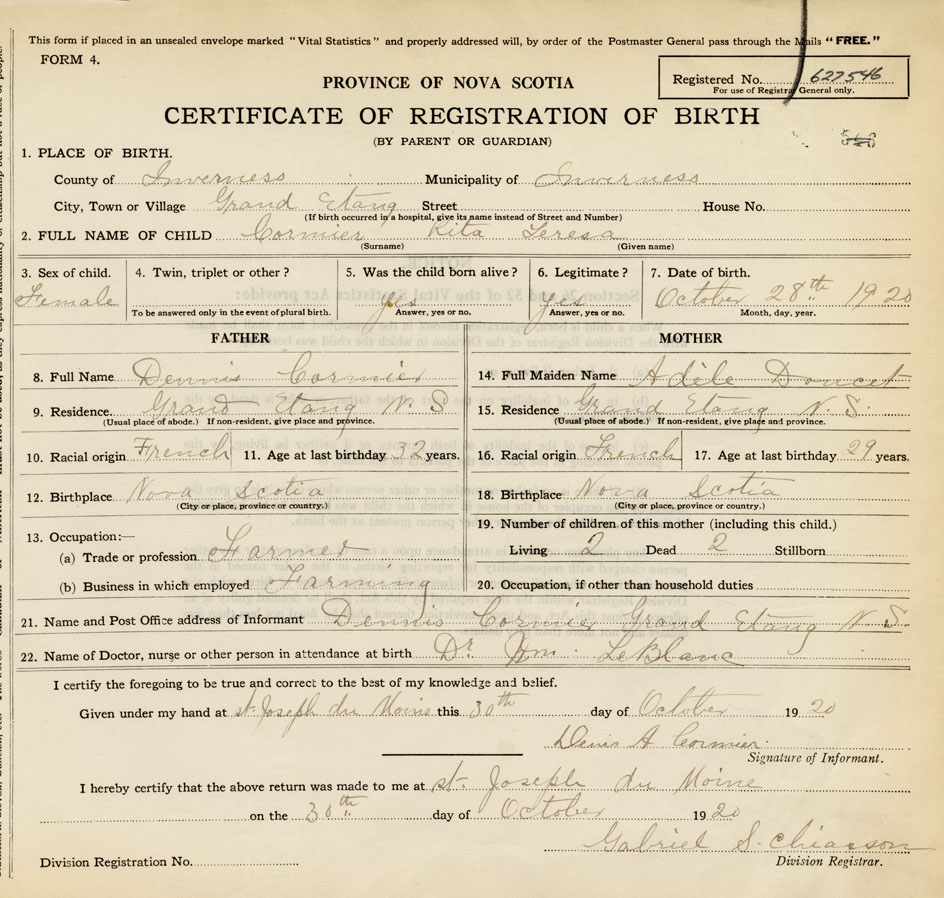 This form if placed in an unsealed envelope marked "Vital Statistics" and properly addressed will, by order of the Postmaster General pass through the Mails "FREE."
FORM 4.
Registered No. 627546
For use of Registrar General only.
PROVINCE OF NOVA SCOTIA
CERTIFICATE OF REGISTRATION OF BIRTH
(BY PARENT OR GUARDIAN)
1. PLACE OF BIRTH.
County of Inverness Municipality of Inverness
City, Town or Village Grand Etang Street House No.
(If birth occurred in a hospital, give its name instead of Street and Number)
2. FULL NAME OF CHILD Cormier Rita Teresa
(Surname) (Given name)
3. Sex of child. 4. Twin, triplet or other? 5. Was the child born alive? 6. Legitimate? 7. Date of birth.
Female yes yes October 28th 1920
To be answered only in the event of plural birth. Answer, yes or no. Answer, yes or no. Month, day, year.
FATHER MOTHER
8. Full Name Dennis Cormier 14. Full Maiden Name Adèle Doucet
9. Residence. Grand Etang N.S 15. Residence Grand Etang N.S.
(Usual place of abode.) If non-resident, give place and province. (Usual place of abode.) If non-resident, give place and province.
10. Racial origin French 11. Age at last birthday 32 years. 16. Racial origin French 17. Age at last birthday 29 years.
12. Birthplace Nova Scotia 18. Birthplace Nova Scotia
(City or place, province or country.) (City or place, province or country.)
13. Occupation:— 19. Number of children of this mother (including this child.)
(a) Trade or profession Farmer Living 2 Dead 2 Stillborn
(b) Business in which employed Farming 20. Occupation, if other than household duties
21. Name and Post Office address of Informant Dennis Cormier Grand Etang N.S.
22. Name of Doctor, nurse or other person in attendance at birth Dr Wm. LeBlanc
I certify the foregoing to be true and correct to the best of my knowledge and belief.
Given under my hand at St. Joseph du Moine this 30th day of October 1920
Denis A Cormier
Signature of Informant.
I hereby certify that the above return was made to me at St. Joseph du Moine
on the 30th day of October 1920
Gabriel S. Chiasson
Division Registration No. Division Registrar.